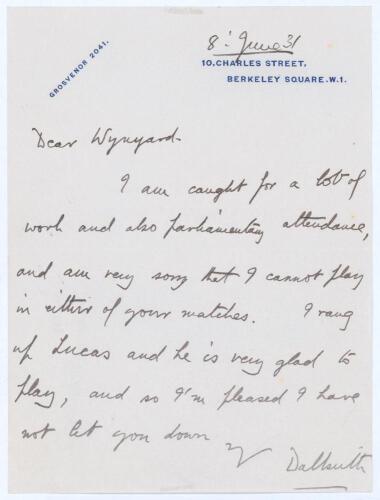 GROSVENOR 2041.
8: June 31
10, CHARLES STREET,
BERKELEY SQUARE. W.1.
Dear Wynyard -
I am caught for a lot of
work and also parliamentary attendance,
and am very sorry that I cannot play
in either of your matches. I rang
up Lucas and he is very glad to
play, and so I'm pleased I have
not let you down
Dalkeith